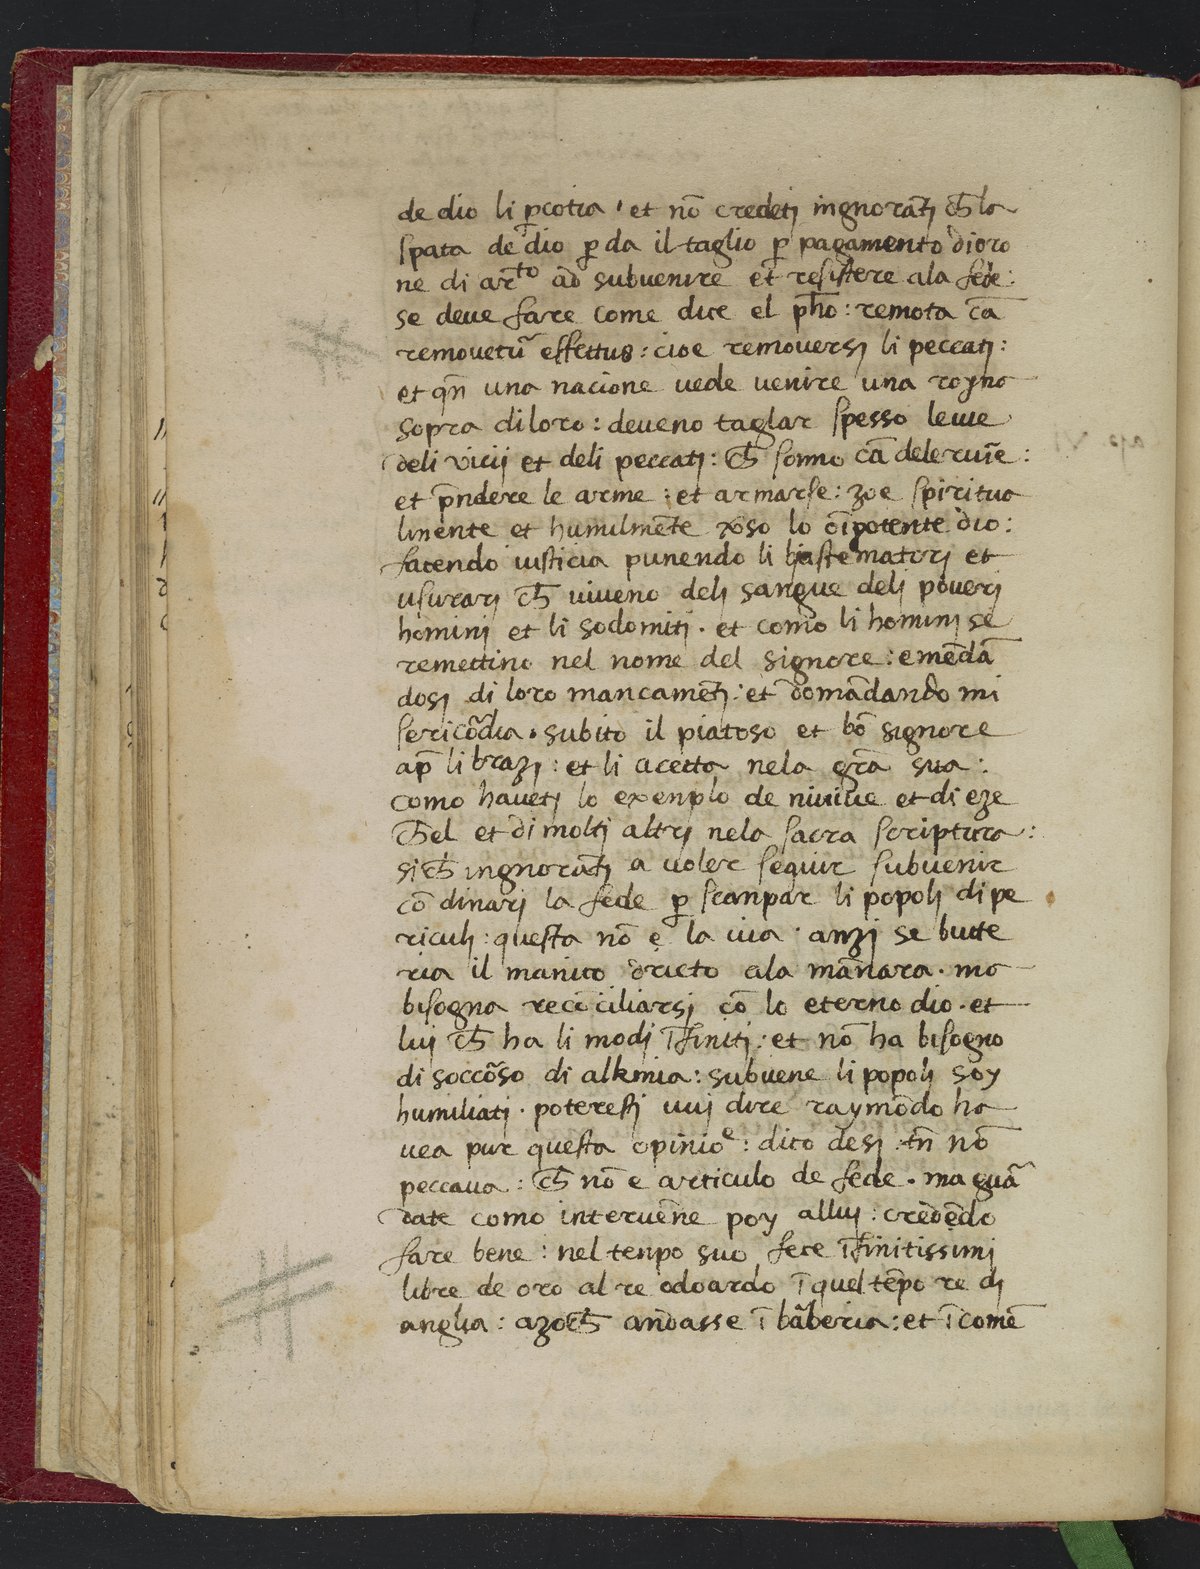 de dio li pcotia · et nō credeti ingnorāti ch̄ la
spata de dio ꝑda il taglio ꝑ pagamento di oro
ne di arto ad subvenire et resistere ala fede:
se deve fare come dice el ph̄o: remota cā
removetur̄ effettus: cioe removersi li peccati:
et qn̄ una nacione vede venire una royna
sopra di loro: deveno taglar spesso le vie
deli vicij et deli peccati: ch̄ sonno cā dele ruīe:
et p̄ndere le arme: et armarse: zoe spiritua
lmente et humilmēte v̄so lo oīpotente dio:
facendo iusticia punendo li biastematori et
usurari ch̄ viveno deli sangue deli poveri
homini et li sodomiti · et como li homini se
remettino nel nome del signore: emēdā
dosi di loro mancamēti: et domādando mi
sericōdia · subito il piatoso et bō signore
ap̄ li brazi: et li acetta nela gr̄a sua:
como haveti lo exenplo de ninive et di eze
ch̄el et di molti altri nela sacra scriptura:
sich̄ ingnorāti a voler seguir subvenir
cō dinari la fede ꝑ scanpar li popoli di pe
riculi: questa nō e la via · anzi se butte
ria il manico drieto ala mānara · ma
bisogna recōciliarsi cō lo eterno dio · et
lui ch̄ ha li modi īfiniti: et nō ha bisogno
di soccōso di alkmia: subvene li popoli soy
humiliati · poteresti vui dire raymōdo ha
vea pur questa opinioe: dico de si: tn̄ nō
peccava: ch̄ nō e articulo de fede · ma guā
date como intervēne poy allui: credēdo
fare bene: nel tenpo suo fece īfinitissimi
libre de oro al re odoardo ī quel tēpo re di
anglia: azoch̄ andasse ī bāberia: et ī comē